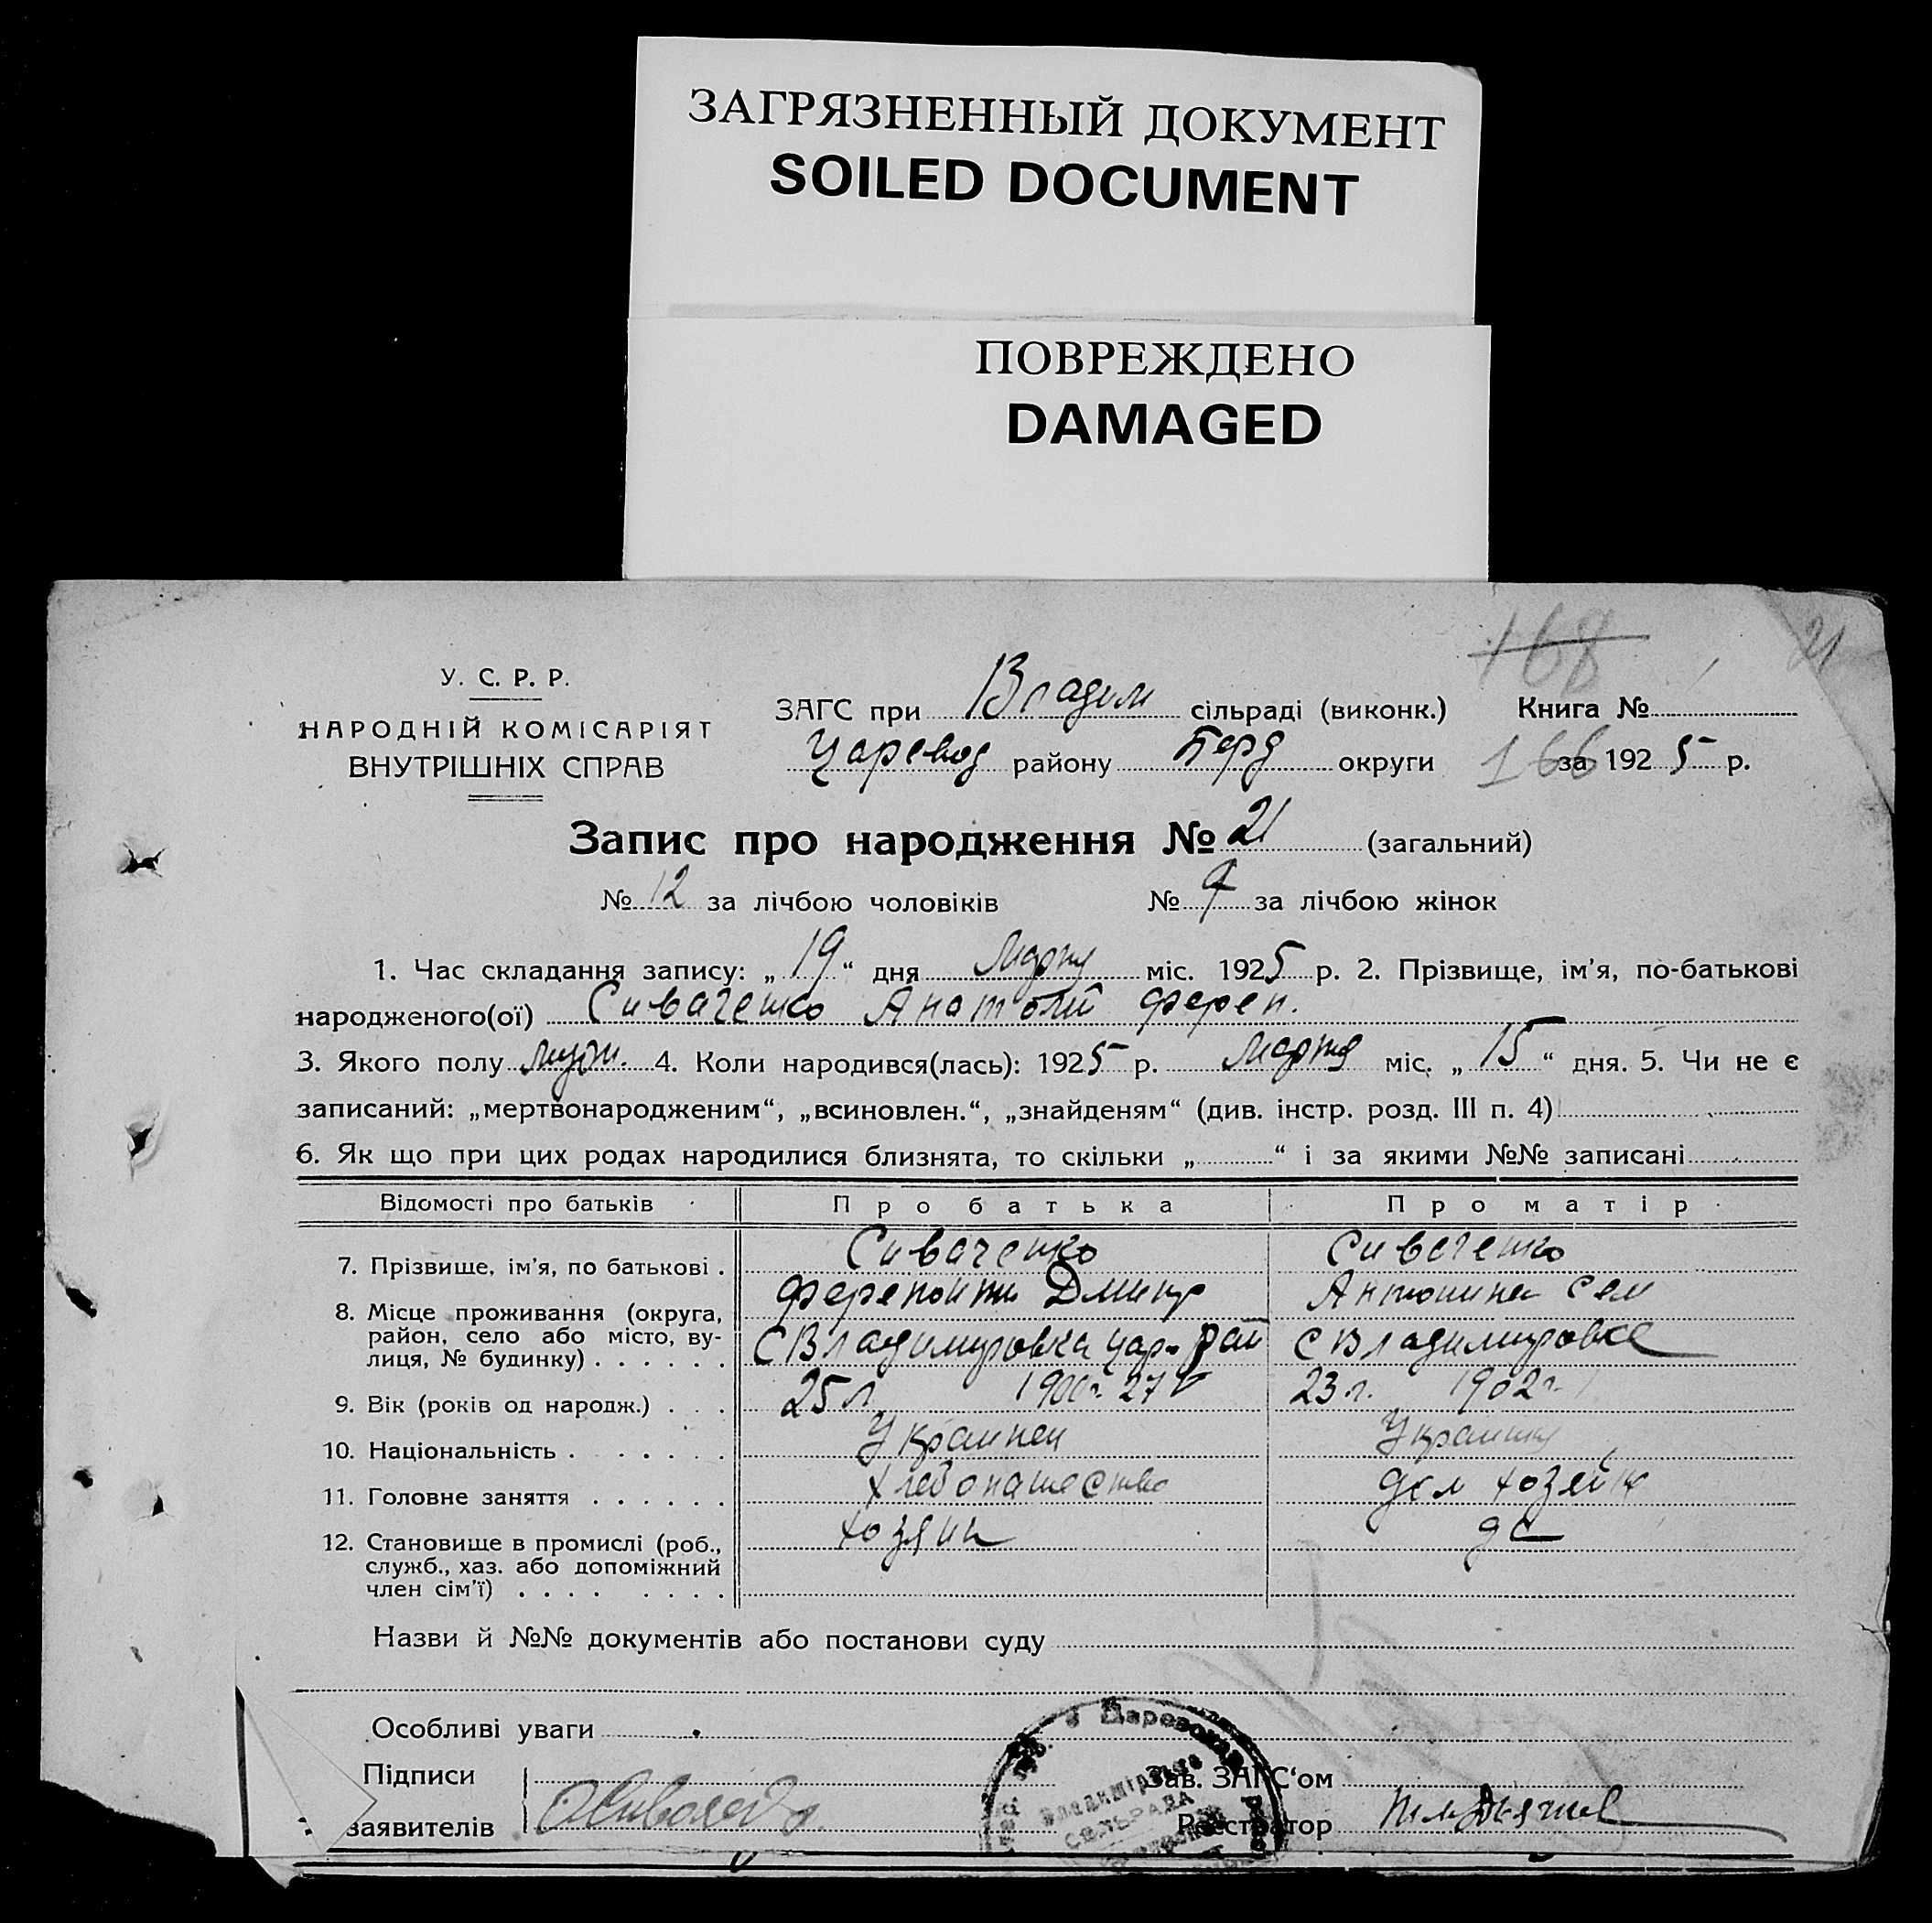 ЗАГРЯЗНЕННЫЙ ДОКУМЕНТ
SOILED DOCUMENT
ПОВРЕЖДЕНО
DAMAGED
168
21
У. С. Р. Р.
НАРОДНІЙ КОМІСАРІЯТ
ВНУТРІШНІХ СПРАВ
ЗАГС при Владим сільраді (виконк.) Книга №
Царевод району Берд округи 166 за 1925 р.
Запис про народження № 21 (загальний)
№ 12 за лічбою чоловіків № 9 за лічбою жінок
1. Час складання запису: „19“ дня марта міс. 1925 р. 2. Прізвище, ім'я, по-батькові
народженого(ої) Сиваченко Анатолий Ферен.
3. Якого полу муж. 4. Коли народився(лась): 1925 р. марта міс. „15“ дня. 5. Чи не є
записаний: „мертвонародженим“, „всиновлен.“, „знайденям“ (див. інстр. розд. III п. 4)
6. Як що при цих родах народилися близнята, то скільки „ “ і за якими №№ записані
Відомості про батьків Про батька Про матір
7. Прізвище, ім'я, по батькові . Сиваченко Сиваченко
Дмитр Антонина Сем
8. Місце проживання (округа,
район, село або місто, ву-
лиця, № будинку) . . . . . . с Владимировка цар. рай с Владимировка
9. Вік (років од народж.) . . . 25 л 1900 г. 23 л. 1902 г.
10. Національність . . . . . . Украинец Украинка
11. Головне заняття . . . . . . хлебопашество дом хозяйка
12. Становище в промислі (роб.,
служб., хаз. або допоміжний
член сім'ї) . . . . . . . . хозяин дс
Назви й №№ документів або постанови суду
Особливі уваги
Підписи
заявителів
Зав. ЗАГС‘ом
Реєстратор
СЕЛЬРАДА